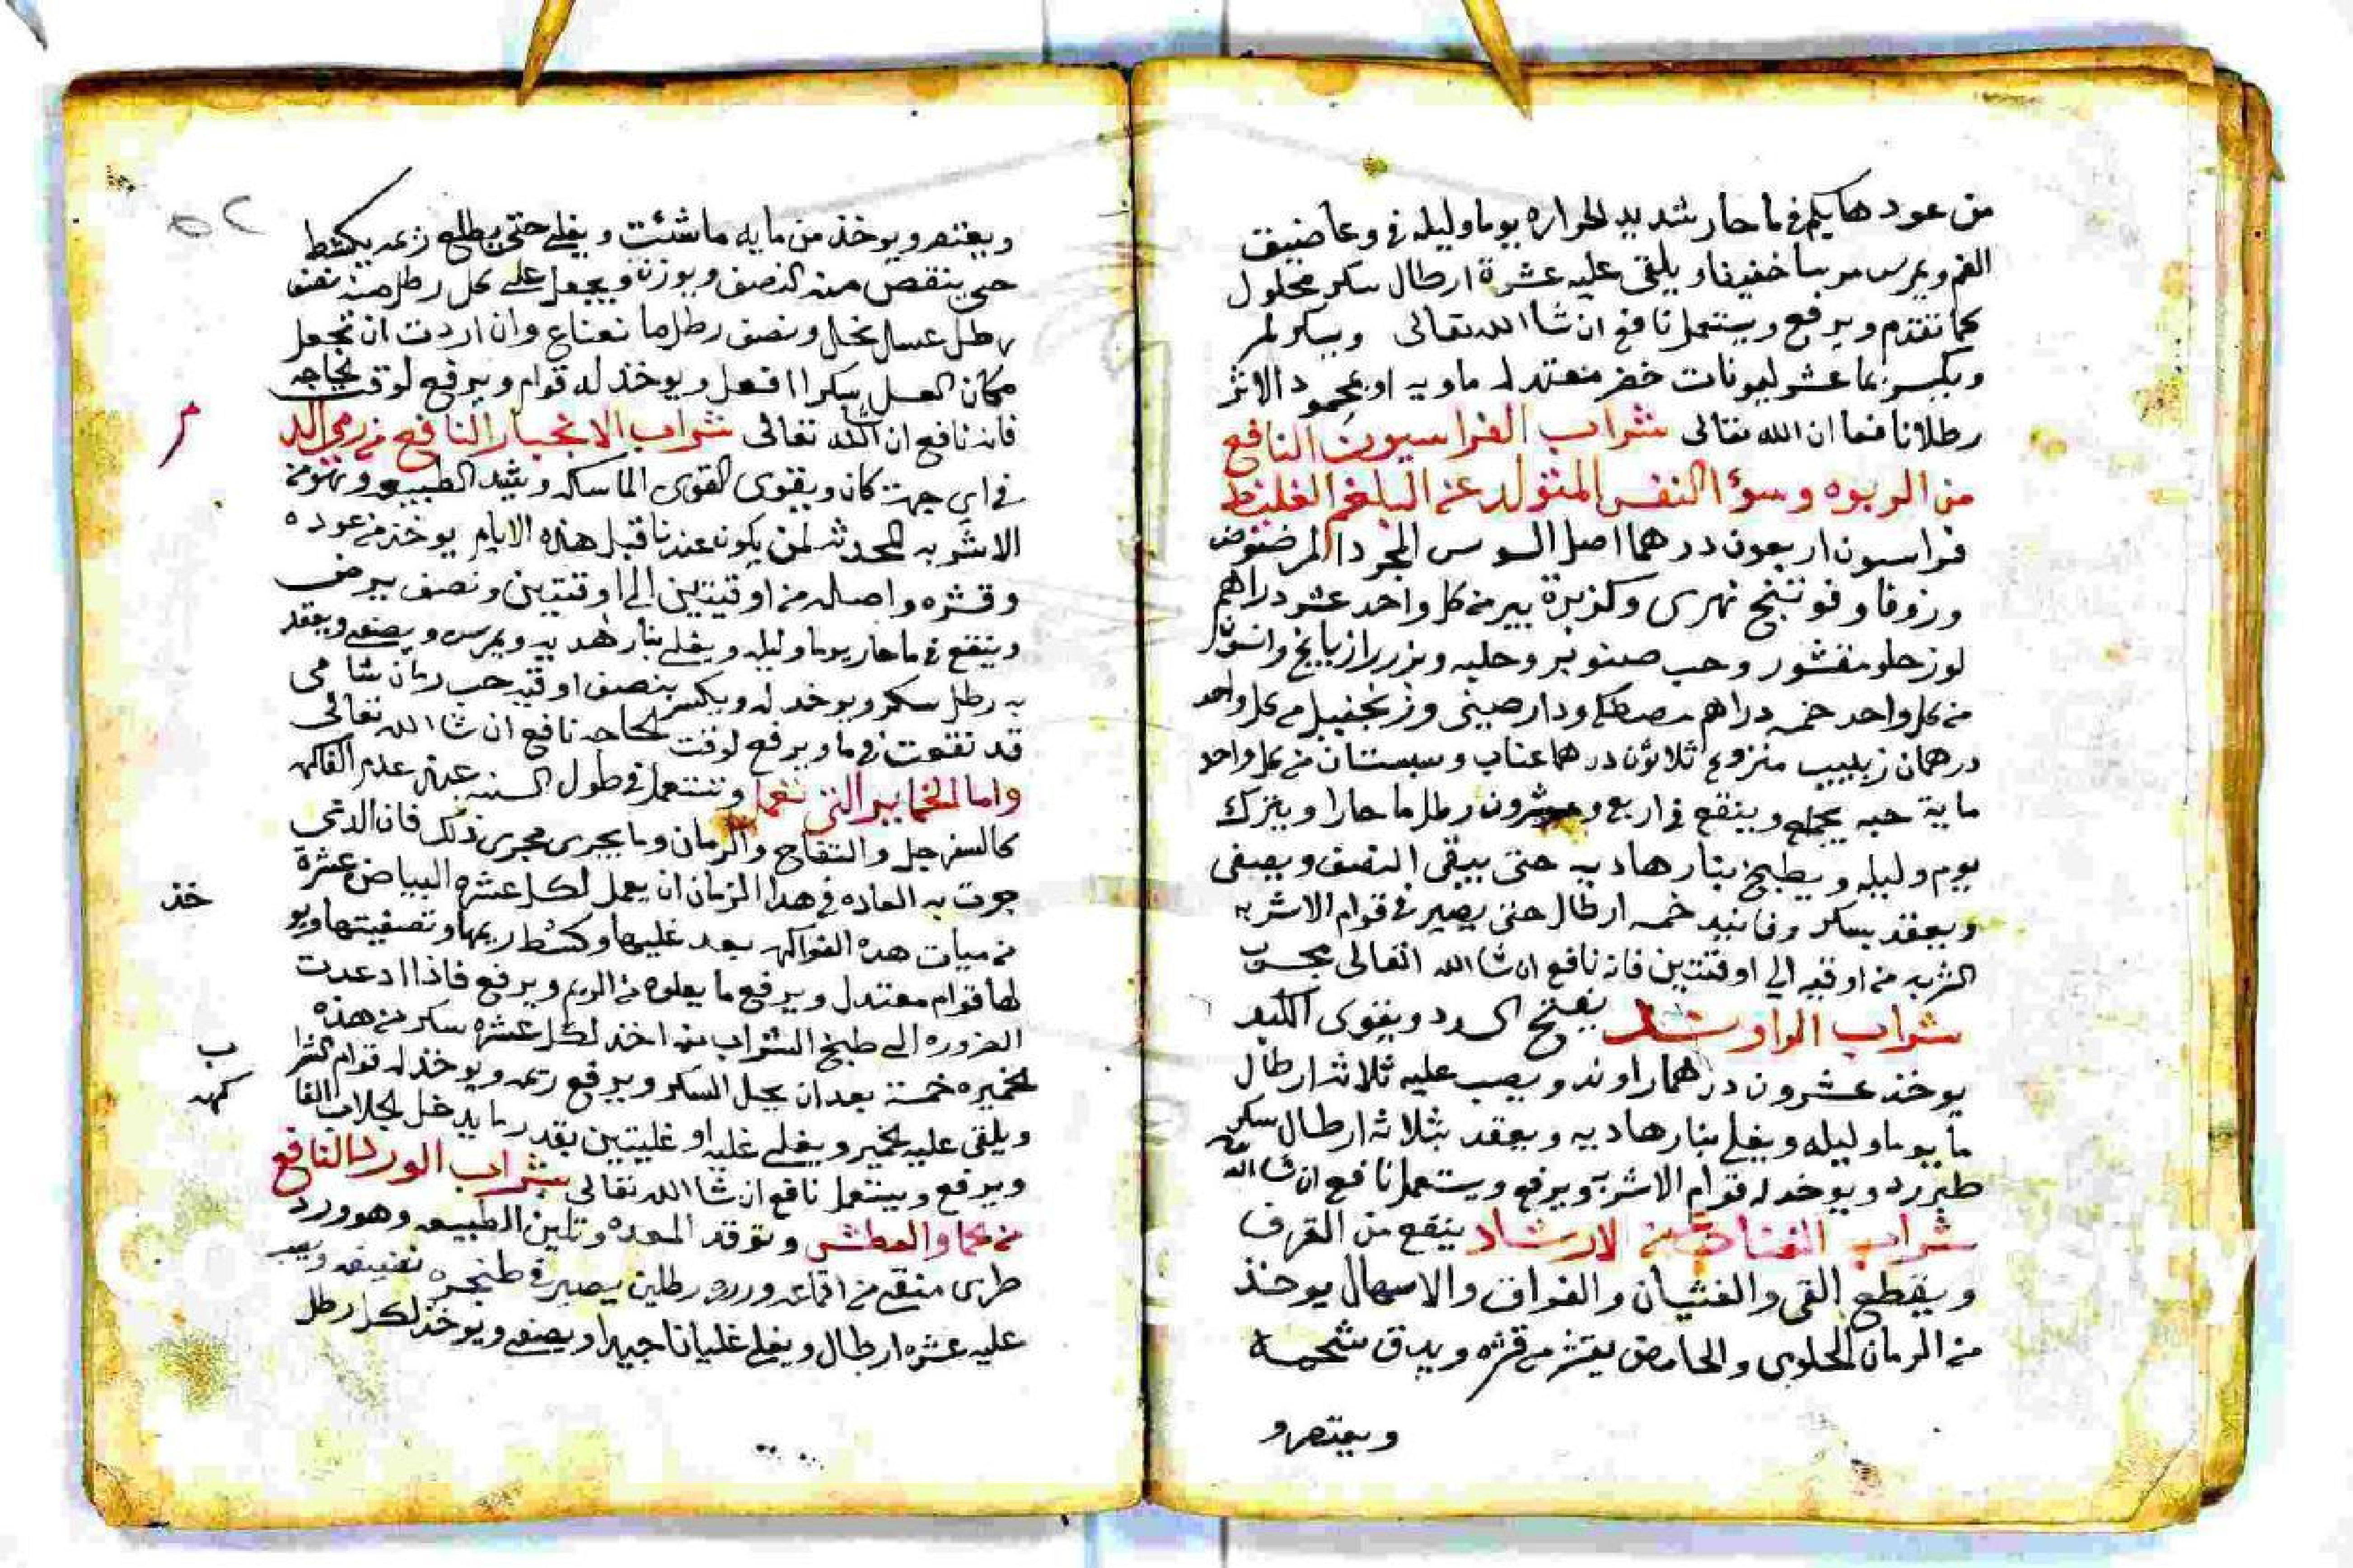 من عود هايكم في ما حار شديد الحراره يوما وليله في وعا ضيق
الفم ويمرس مرسا خفيفا ويلقى عليه عشرة ارطال سكر محلول
كما تقدم ويرفع ويستعمل نافع ان شا الله تعالى وبسكر لمر
ويكسر بما عشر ليمونات خضر معتدله ماويه او
رطلا نافعا ان الله تعالى شراب الفراسيون النافع
من الربوه وسؤ النفس المتولد عن البلغم الغليظ
فراسيون اربعون درهما اصل السوس المجرد المرضوض
وزوفا وفوتنج نهرى وكزبرة بير من كل واحد عشر دراهم
لوز حلو مقشور وحب صنوبر وحلبه وبزر رازيانج وانسون
من كل واحد خمسه دراهم مصطكى ودارصينى وزنجبيل من كل واحد
درهمان زبيب منزوع ثلاثون درهما عناب وسبستان من كل واحد
ماية حبه يجمع وينقع في اربع وعشرون رطل ما حارا ويترك
يوم وليله ويطبخ بنار هاديه حتى يبقى النصف ويصفى
ويعقد بسكر وفانيد خمسه ارطال حتى يصير في قوام الاشربه
الشربه من اوقيه الي اوقيتين فانه نافع ان شا الله تعالى مجرب
شراب الراوند يفتح السدد ويقوى الكبد
يوخذ عشرون درهما راوند ويصب عليه ثلاثه ارطال
ما يوما وليله ويغلى بنار هاديه ويعقد بثلاثه ارطال سكر
طبرزد ويوخد له قوام الاشربه ويرفع ويستعمل نافع ان شا الله
شراب من الارشاد ينفع من القرف
ويقطع القى والغثيان والفواق والاسهال يوخذ
من الرمان الحلوى والحامض يقشر من قشره ويدق شحمه
ويعتصرو
ويعتصر ويوخذ من مايه ما شئت ويغلى حتى يطلع زعمه يكشط
حتى ينقص منه النصف ويوزن ويجعل على كل رطل منه نصف
رطل عسل نحل ونصف رطل ما نعناع وان اردت ان تجعل
مكان العسل سكرا افعل ويوخذ له قوام ويرفع لوقت الحاجه
فانه نافع ان شا الله تعالى شراب الانجبار النافع من رمى الد
م
في اي جهة كان ويقوى القوى الماسكه ويشد الطبيعه وهو من
الاشربه المحدثه لمن يكون عندنا قبل هذه الايام يوخذ من عوده
وقشره واصله من اوقيتين الى اوقيتين ونصف يرض
وينقع في ما حار يوما وليله ويغلى بنار هديه ويمرس ويصفى ويعقد
به رطل سكر ويوخد له ويكسر بنصف اوقيه حب رمان شامى
قد نقعت في ما ويرفع لوقت الحاجه نافع ان شا الله تعالى
واما الخماير التى تعمل وتستعمل في طول السنه عند عدم الفاكهه
كالسفرجل والتفاح والرمان وما يجرى مجرى ذلك فان الذي
جرت به العاده في هذا الزمان ان يعمل لكل عشره البياض عشرة
من ميات هذه الفواكه بعد غليها وكشط ريمها وتصفيتها ويو
خذ
لها قوام معتدل ويرفع ما يعلوه من الريم ويرفع فاذا ادعدت
الضروره الى طبخ الشراب منه اخذ لكل عشره سكر من هذه
الخميره خمسة بعد ان يحل السكر ويرفع ريمه ويوخذ له قوام الشرا
ب
ويلقى عليه الخمير ويغلى غليه او غليتين بقدر ما يدخل الجلاب الفا
كهه
ويرفع ويستعمل نافع ان شا الله تعالى شراب الورد النافع
من الحما والعطش وتوقد المعده وتلين الطبيعه وهو ورد
طرى منقى من اقماعه وزره رطلين يصير في طنجره نضيفه ويصب
عليه عشره ارطال ويغلى غليانا جيدا ويصفى ويوخذ لكل رطل